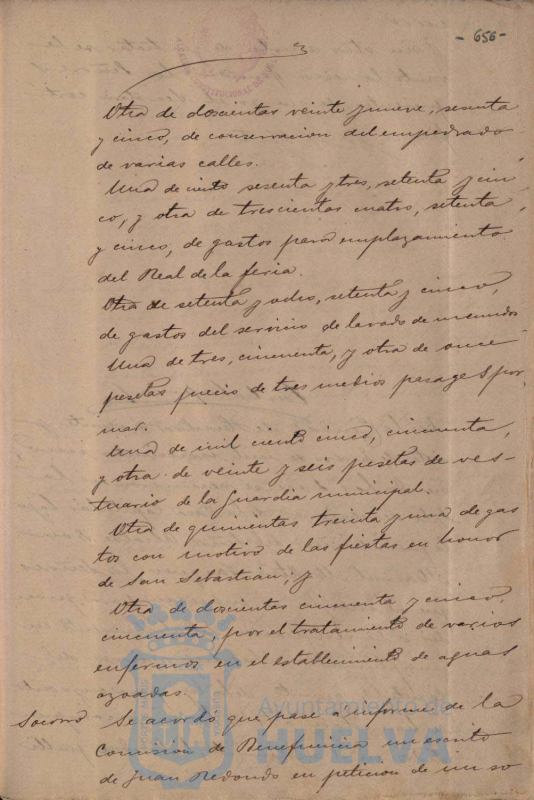 - 656 -
3
Otra de doscientas veinte y nueve, sesenta
y cinco, de conservacion del empedrado
de varias calles.
Una de ciento sesenta y tres, setenta y cin
co, y otra de trescientas cuatro, setenta
y cinco, de gastos para emplazamiento
del Real de la feria.
Otra de setenta y ocho, setenta y cinco,
de gastos del servicio de lavado de
Una de tres, cincuenta, y otra de once
pesetas precio de tres medios pasages por
mar.
Una de mil ciento cinco, cincuenta,
y otra de veinte y seis pesetas de ves-
tuario de la Guardia municipal.
Otra de quinientas treinta y una de gas
tos con motivo de las fiestas en honor
de San Sebastian; y
Otra de doscientas cincuenta y cinco,
cincuenta, por el tratamiento de varios
enfermos en el establecimiento de aguas
azoadas.
Socorro Se acordó que pase a informe de la
Comision de Beneficencia un escrito
de Juan Redondo en peticion de un so
Ayuntamiento de
HUELVA